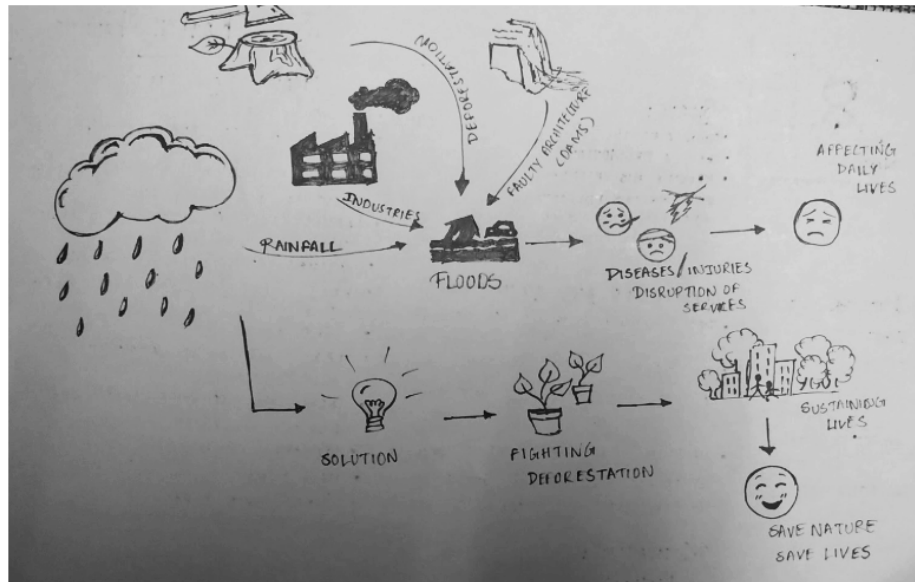 DEFORESTATION
FAULTY ARCHITECTURE
(DAMS)
INDUSTRIES
RAINFALL
FLOODS
DISEASES/INJURIES
DISRUPTION OF
SERVICES
AFFECTING
DAILY
LIVES
SOLUTION
FIGHTING
DEFORESTATION
SUSTAINING
LIVES
SAVE NATURE
SAVE LIVES